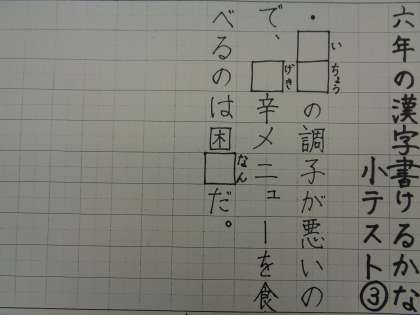 六年の漢字書けるかな
小テスト③
・□□の調子が悪いの
いちょう
で、□辛メニューを食
げき
べるのは困□だ。
なん